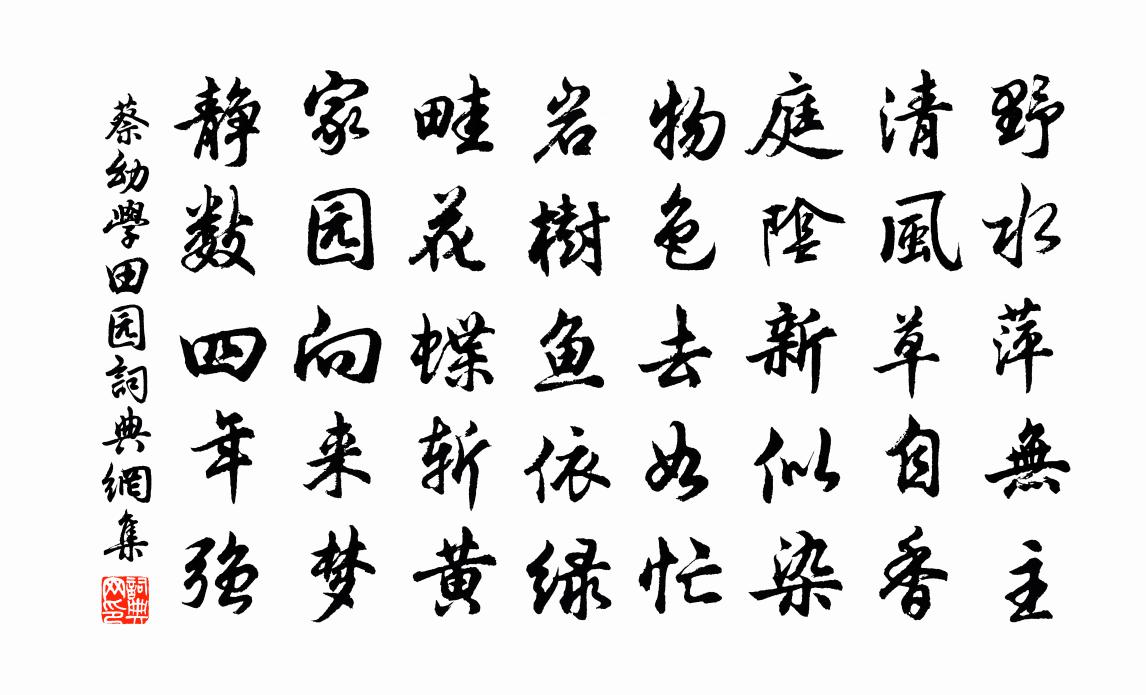 野水萍無主
清風草自香
庭陰新似染
物色去如忙
岩樹鱼依绿
畦花蝶斩黄
家园向来梦
静数四年强
蔡幼學田园詞典網集
詞典网印